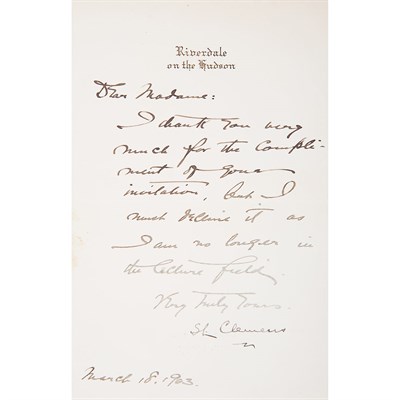 Riverdale
on the Hudson
Dear Madame:
I thank you very
much for the compli-
ment of your
invitation, but I
must decline it as
I am no longer in
the lecture field.
Very Truly Yours.
SL Clemens
March 18. 1903.